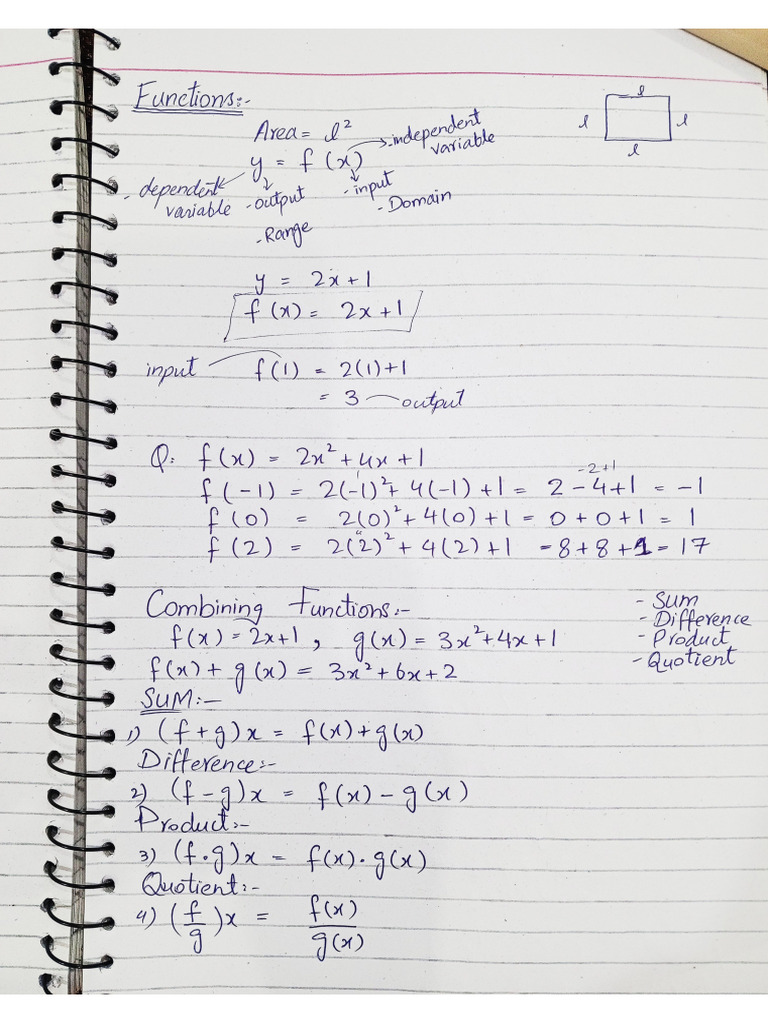 Functions:-
l
Area = l²
l l
→ - independent variable
y = f (x)
l
- dependent variable
- output
- input
- Domain
- Range
y = 2x + 1
f (x) = 2x + 1
input f(1) = 2(1)+1
= 3 output
Q: f(x) = 2x² + 4x + 1
-2+1
f(-1) = 2(-1)² + 4(-1) + 1 = 2 - 4 + 1 = -1
f(0) = 2(0)² + 4(0) + 1 = 0 + 0 + 1 = 1
f(2) = 2(2)² + 4(2) + 1 = 8 + 8 + 1 = 17
Combining Functions:-
- Sum
- Difference
- Product
- Quotient
f(x) = 2x+1 , g(x) = 3x²+4x+1
f(x) + g(x) = 3x² + 6x + 2
SUM:-
1) (f + g)x = f(x) + g(x)
Difference:-
2) (f - g)x = f(x) - g(x)
Product:-
3) (f . g)x = f(x) . g(x)
Quotient:-
4) (f/g)x = f(x)/g(x)